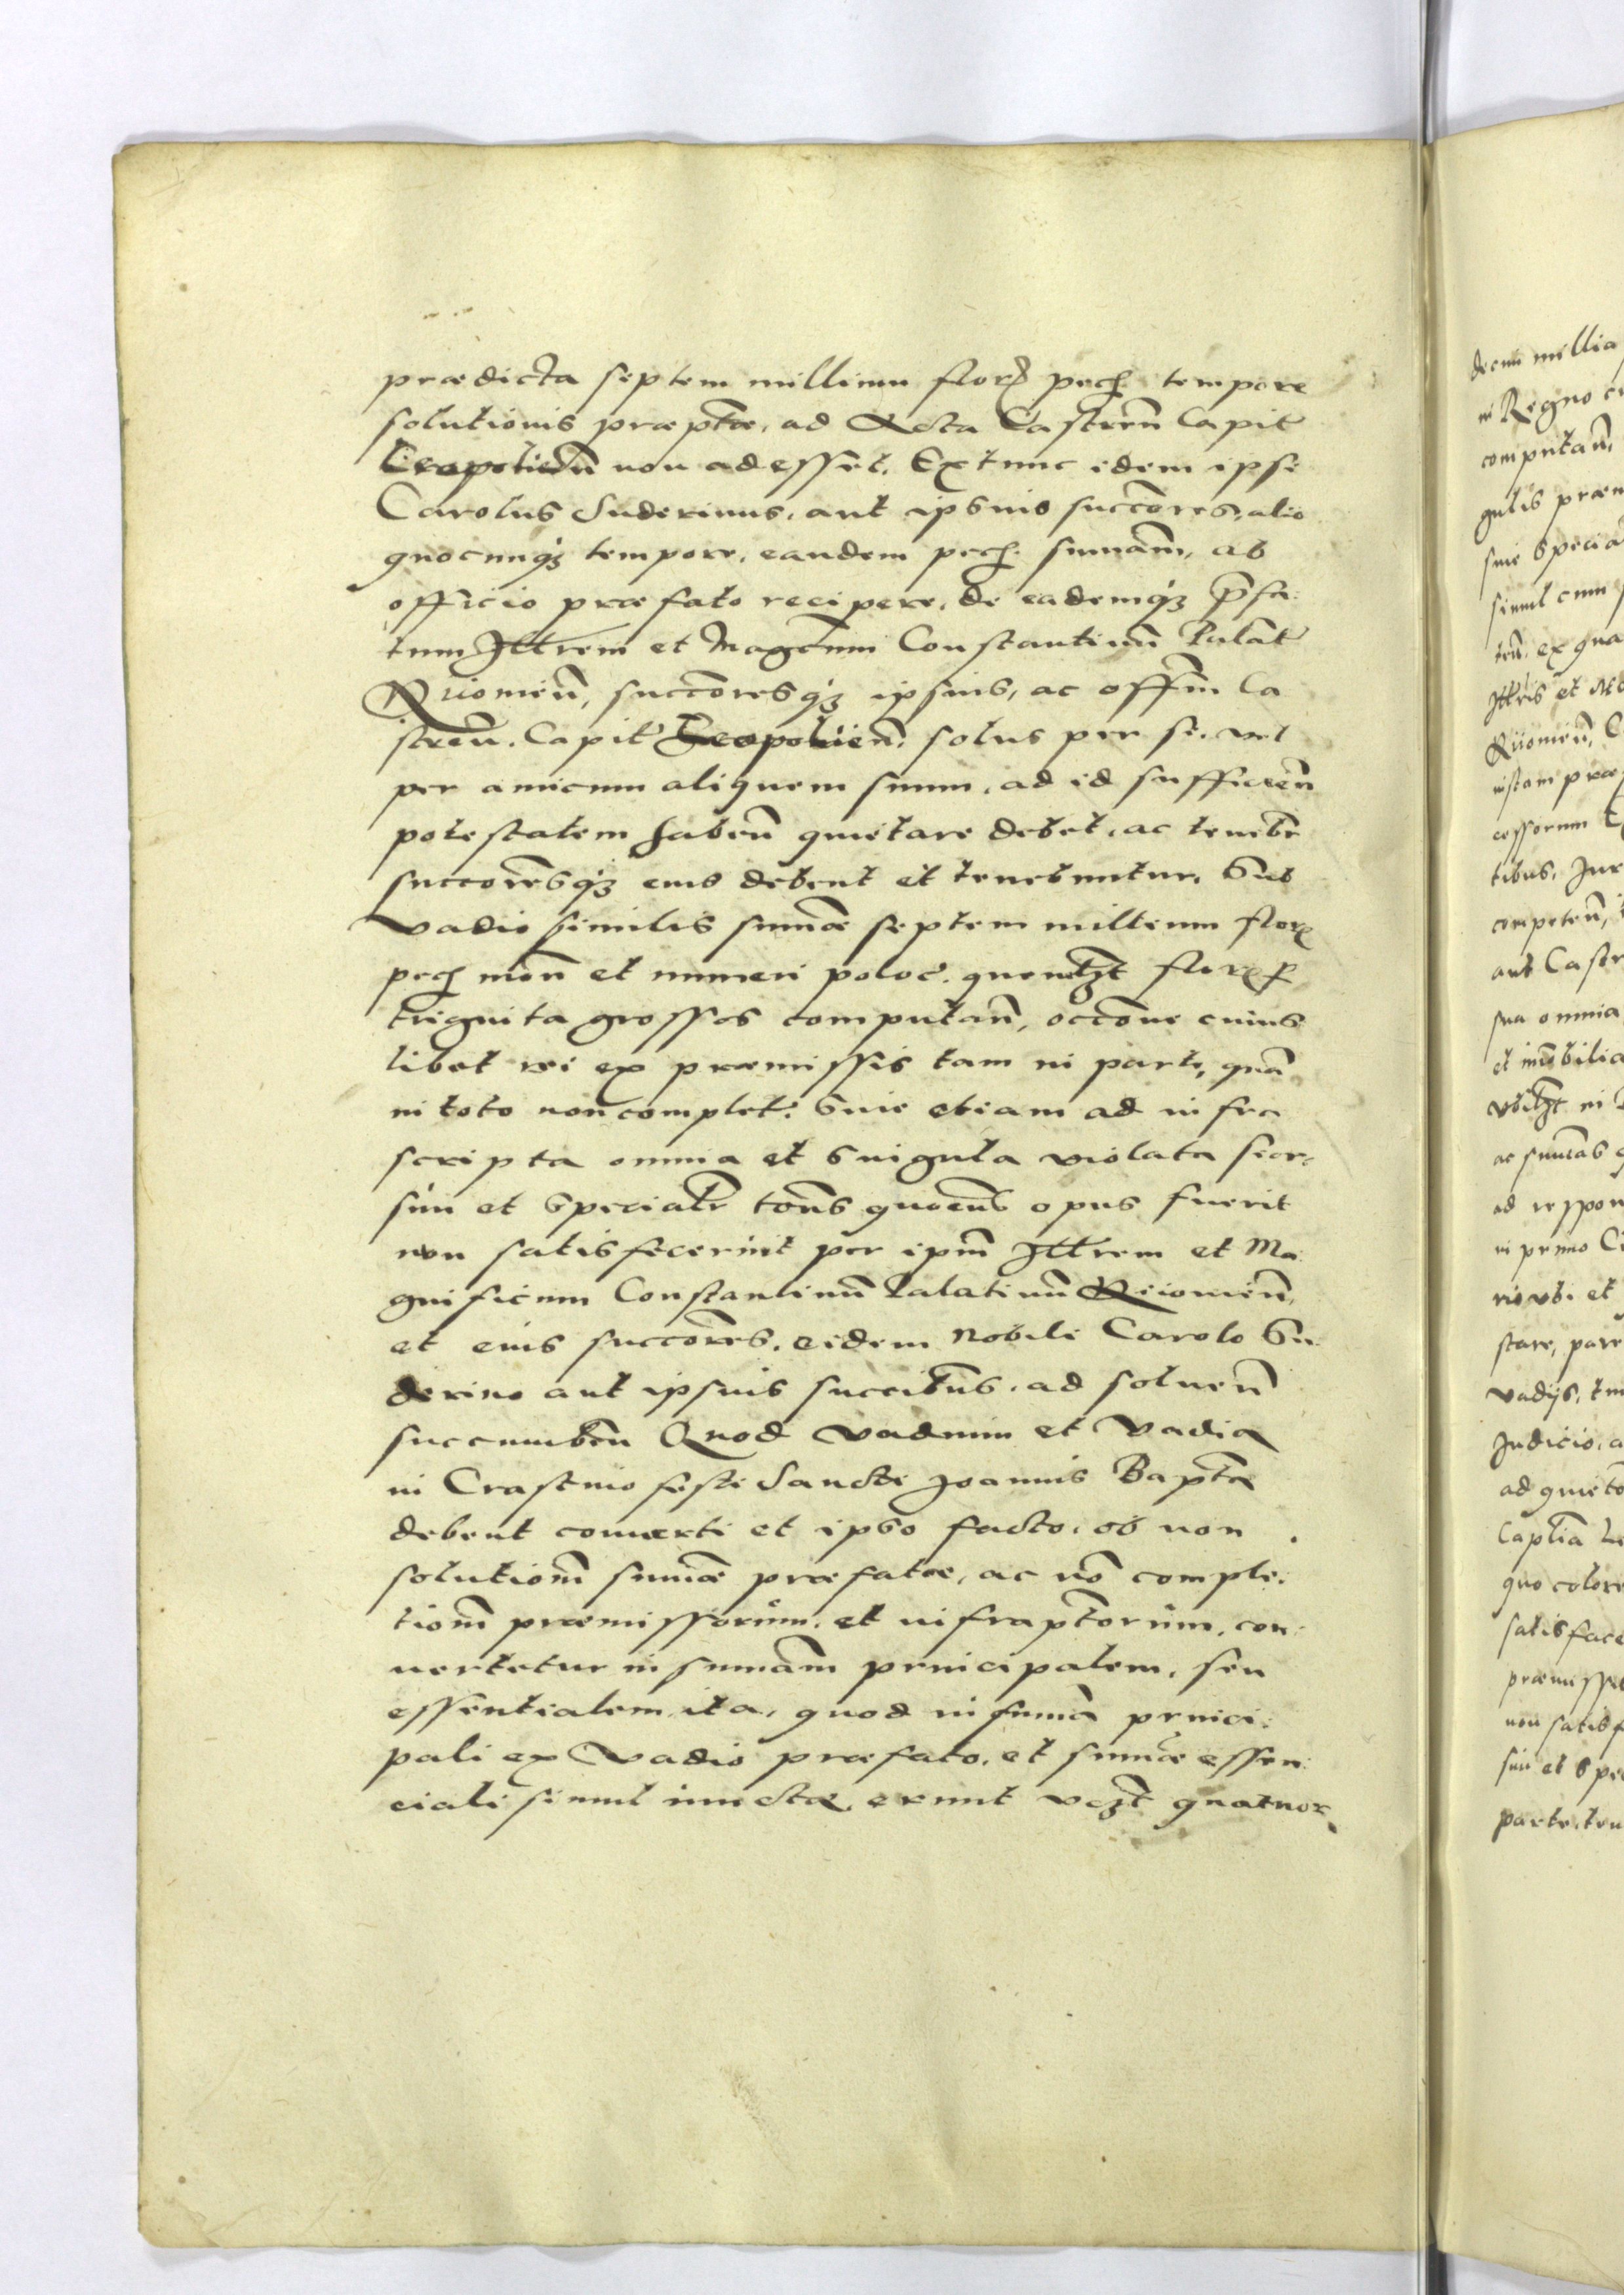 prædicta septem millium flor pecũ tempore
solutionis præptæ, ad Acta Castreñ Capit
Leopolieñ non adesset. Extunc idem ipse
Carolus Suderinus, aut ipsius succores, alio
quocunq3 tempore, eandem pecũ sumam, ab
officio præfato recipere, de eademq3 præfa:
tum Illrem et Magcum Constantinũ Palat
Kiiomieñ, succoresq3 ipsius, ac offm Ca
streñ. Capit Leopolieñ. solus per se, vel
per amicum aliquem suum, ad id sufficieñ
potestatem habeñ quietare debet, ac tenebr
succoresq3 eius debent et tenebuntur. Sub
vadio similis sumæ septem millium flor
pecũ moñ et numeri poloc̃. quemlzt flor p
triginta grossos computañ, occone cuius
libet rei ex præmissis tam in parte, quã
in toto non complet. Sive etiam ad infra
scripta omnia et singula violata seor:
sim et specialr toñs quoeũs opus fuerit
non satisfecerint per ipm Illrem et Ma
gnificum Constantinũ Palatinũ Kiiomieñ,
et eius succores. eidem Nobili Carolo Su:
derino aut ipsius succibus, ad solueñ
succumbeñ Quod vadium et Vadia
in Crastino festi Sancti Joannis Baptæ
debent converti et ipso facto, ob non
solutiom sumæ præfatæ, ac nõ comple:
tiom præmissorum, et infraptorum, con:
vertetur in sumam principalem, seu
essentialem ita, quod in suma princi:
pali ex Vadio præfato, et suma essen:
ciali simul iuncta erunt vczt quatuor
decim millia
in Regno
computañ,
gulis
sive specia
simul cum
ex qua
Illris et
Kiiomieñ,
istam præ
cessorum
tibus, Jur
competeñ,
aut Castr
sua omnia
et imobilia
vbilzt in
ac sumas
ad respon
in primo
rio vbi et
stare, pare
vadijs,
Judicio, a
ad quieto
Captia
quo colore
satisface
præmissis
non satisf
sim et spe
parte,